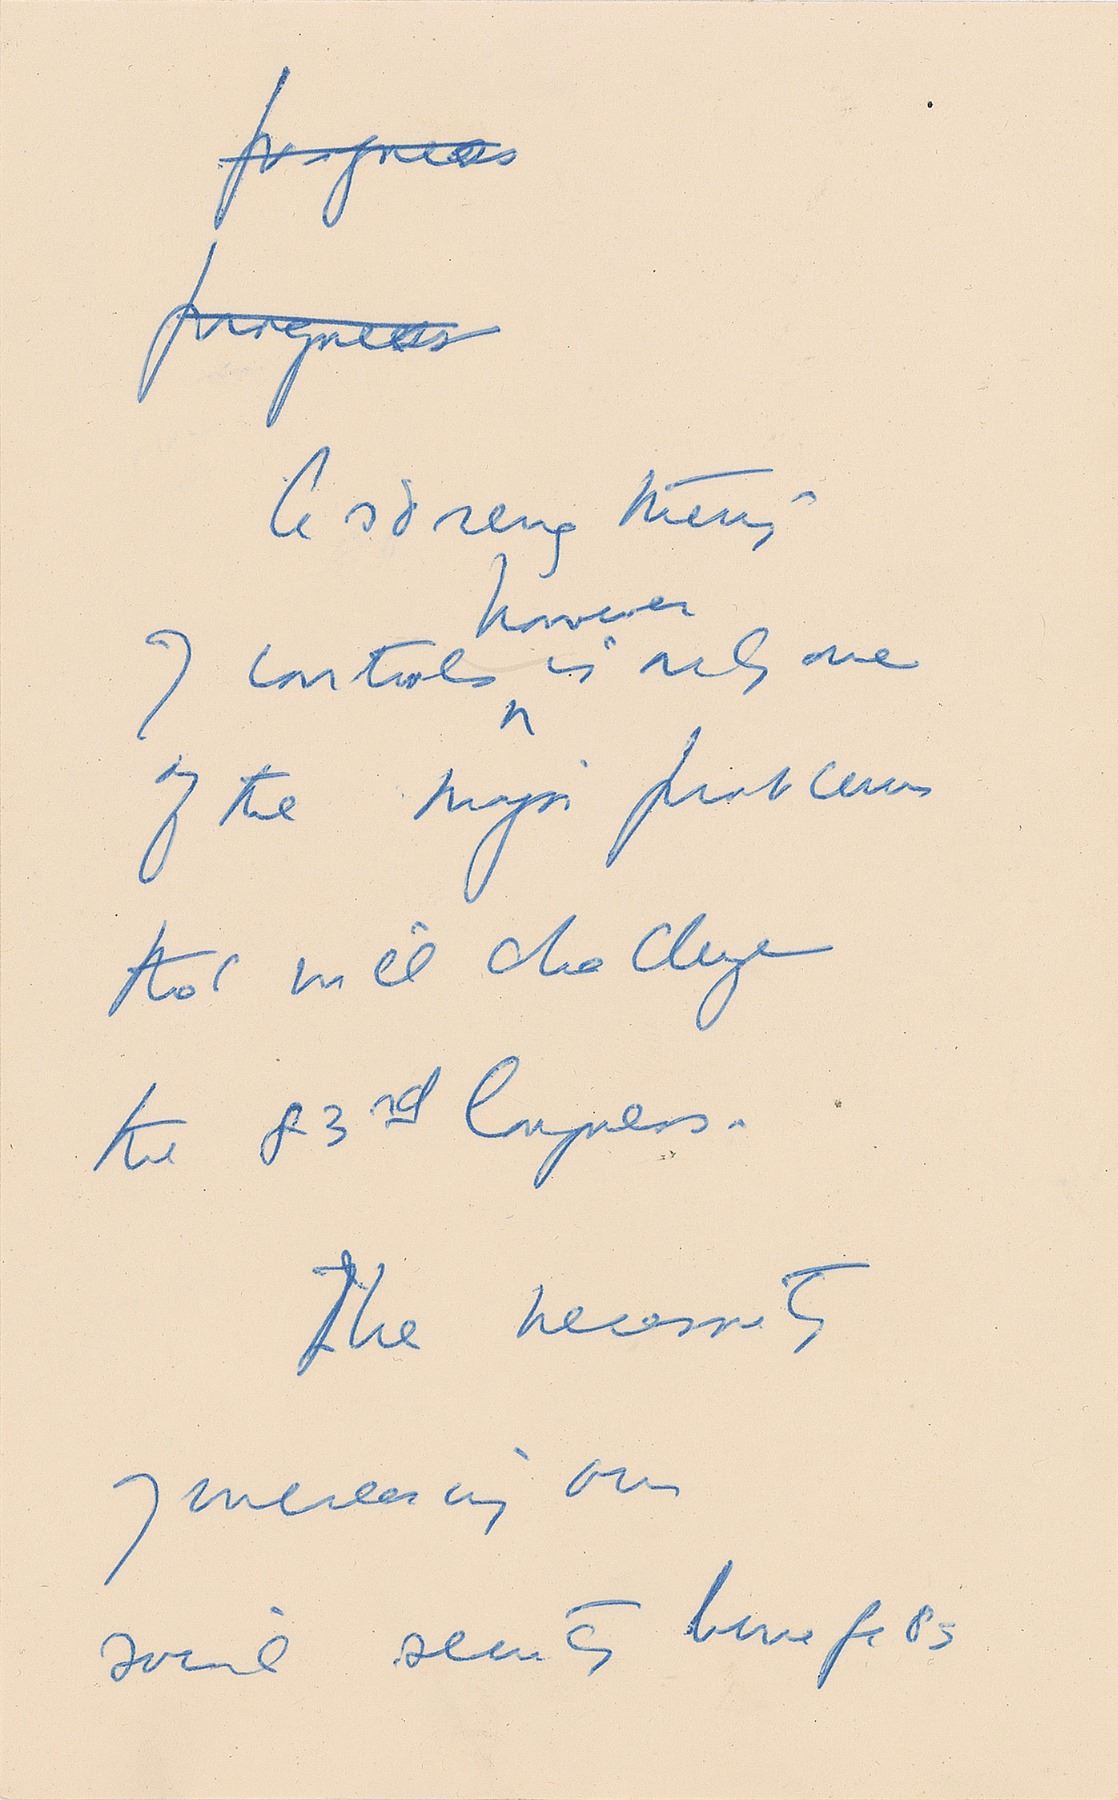 progress
progress
A strengthening
however
of controls is only one
of the major problems
that will challenge
the 83rd Congress.
The necessity
of increasing our
social security benefits